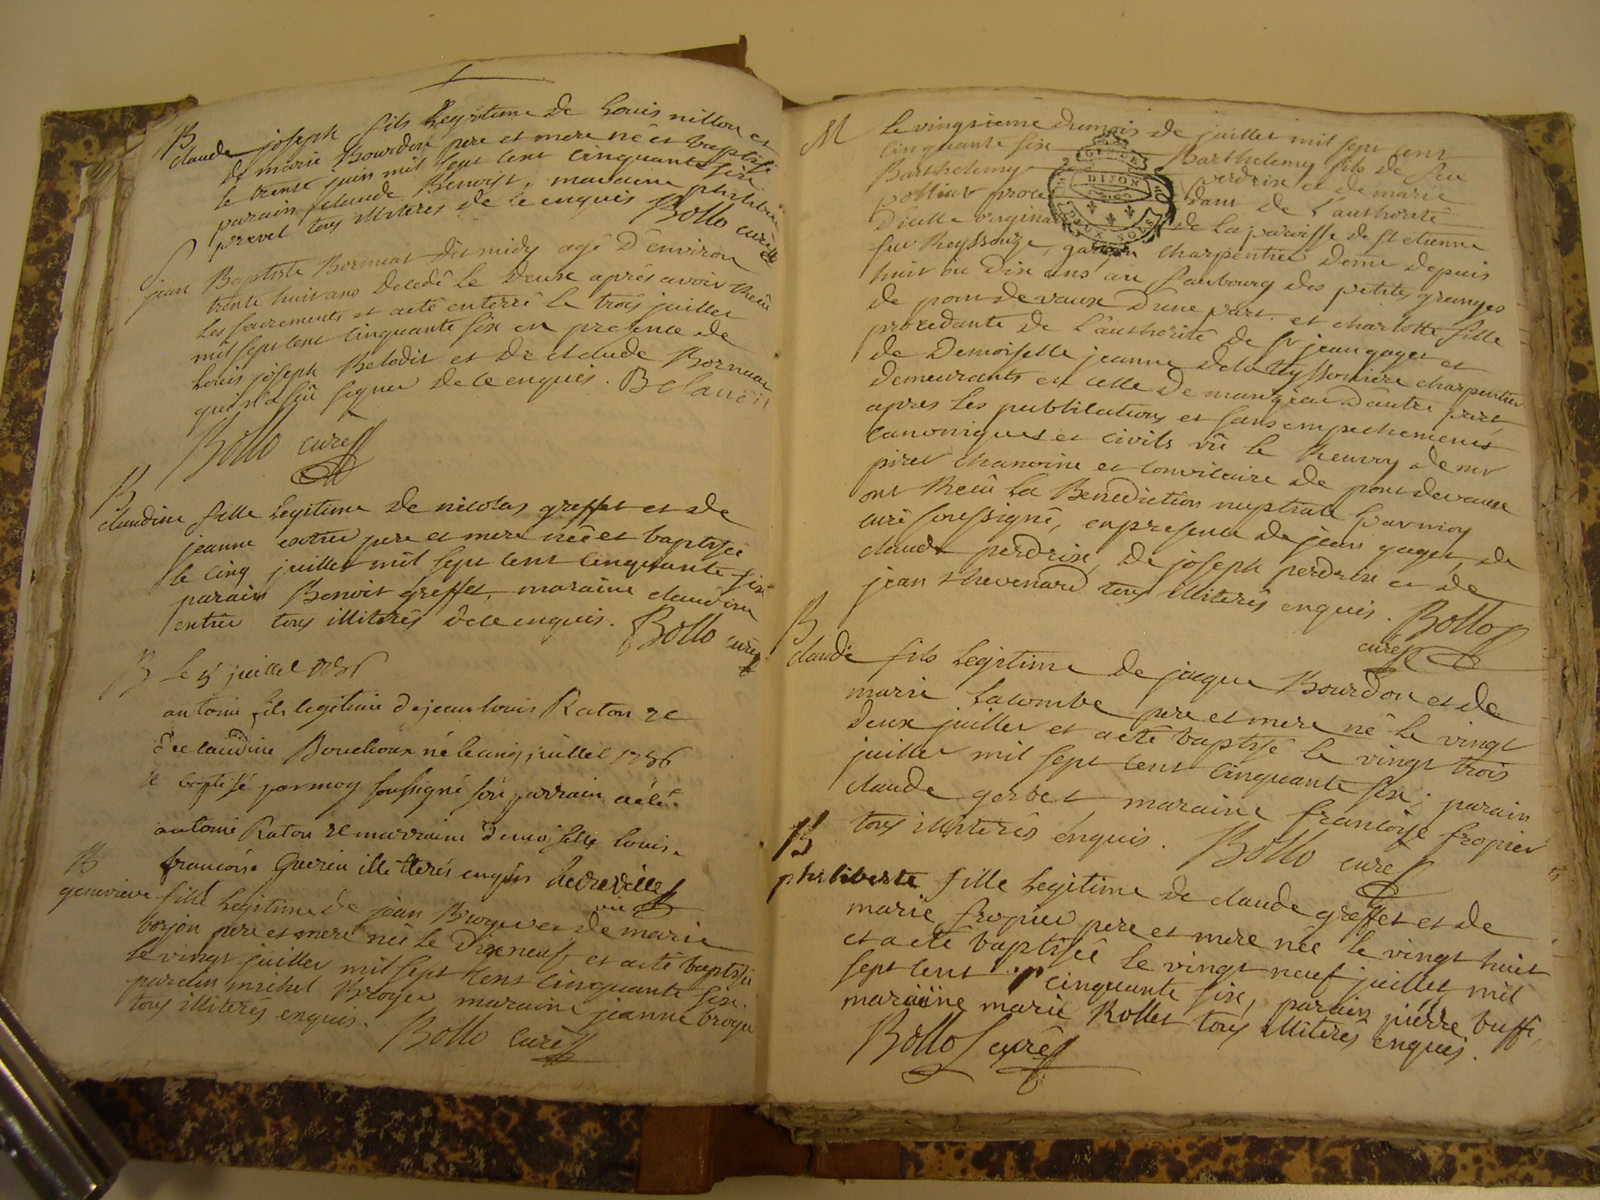 B
claude joseph fils legitime de Louis nillon et
de marie Bourdon pere et mere né et baptisé
le trente juin mil sept cent cinquante six
parain claude Benoist, maraine philiber
prevel tous illiterés de ce enquis Bollo curé
S
jean Baptiste Borniat dit midy agé d'environ
trente huit ans decedé le deux aprés avoir Recû
les sacrements et a eté enterré le trois juillet
mil sept cent cinquante six en presence de
Louis joseph Beladit et de claude Borniau
qui n'a sçû signer de ce enquis.
Bollo curé
B
claudine fille legitime de nicolas greffet et de
jeanne entrée pere et mere née et baptisée
le cinq juillet mil sept cent cinquante six
parain Benoit greffet, maraine claudine
entrée tous illiterés de ce enquis. Bollo curé
B le 5 juillet 1756
antoine fils legitime de jean louis Raton et
de claudine Bouchoux né le cinq juillet 1756
et baptisé par moy soussigné son parrain a été
antoine Raton et marraine demoiselle louise
francoise Guerin illitterés enquis
vic
B
genevieve fille legitime de jean Broyer et de marie
borjon pere et mere née le dixneuf et a eté baptisée
le vingt juillet mil sept cent cinquante six.
parain michel Broyer maraine jeanne broyer
tous illiterés enquis. Bollo curé
M le vingtieme du mois de juillet mil sept cent
cinquante six Barthelemy fils de feu
Barthelemy perdrix et de marie
polliat proce dant de l'authorité
D'icelle originai de la paroisse de St etienne
GENER DIJON DEUX SOLS
sur Reyssouze, garçon charpentier demt depuis
huit ou dix ans au faubourg des petites granges
de pont de vaux d'une part. et charlotte fille
procedante de l'authorité de Sr jean gaget et
de Demoiselle jeanne charpentier
demeurants en celle de d'autre part,
apres les publications et sans empechements
canoniques et civils vû le Renvoy de mr
piret chanoine et de pont de vaux
ont Recû la Benediction nuptiale par moy
curé soussigné, en presence de jean gaget, de
claude perdrix, de joseph perdrix et de
jean thevenard tous illiterés enquis. Bollo
curé
B
claude fils legitime de jaque Bourdon et de
marie Lacombe pere et mere né le vingt
deux juillet et a eté baptisé le vingt trois
juillet mil sept cent cinquante six; parain
claude gerbet maraine francoise fropier
tous illiterés enquis. Bollo curé
B
philiberte fille legitime de claude greffet et de
marie fropier pere et mere née le vingt huit
et a eté baptisée le vingt neuf juillet mil
sept cent cinquante six, parain pierre buffi,
maraine marie Rollet tous illiterés enquis.
Bollo curé